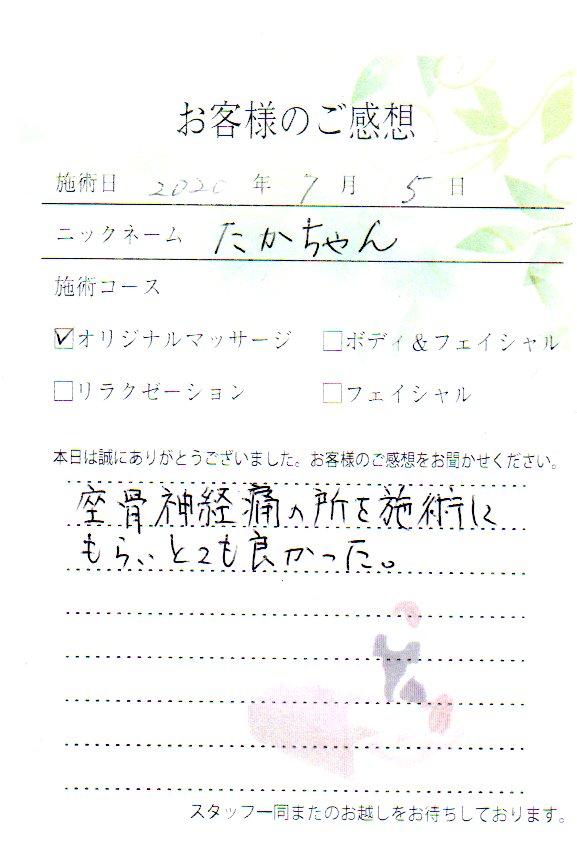 お客様のご感想
施術日 2020 年 7 月 5 日
ニックネーム たかちゃん
施術コース
☑オリジナルマッサージ □ボディ&フェイシャル
□リラクゼーション □フェイシャル
本日は誠にありがとうございました。お客様のご感想をお聞かせください。
座骨神経痛の所を施術して
もらいとても良かった。
スタッフ一同またのお越しをお待ちしております。